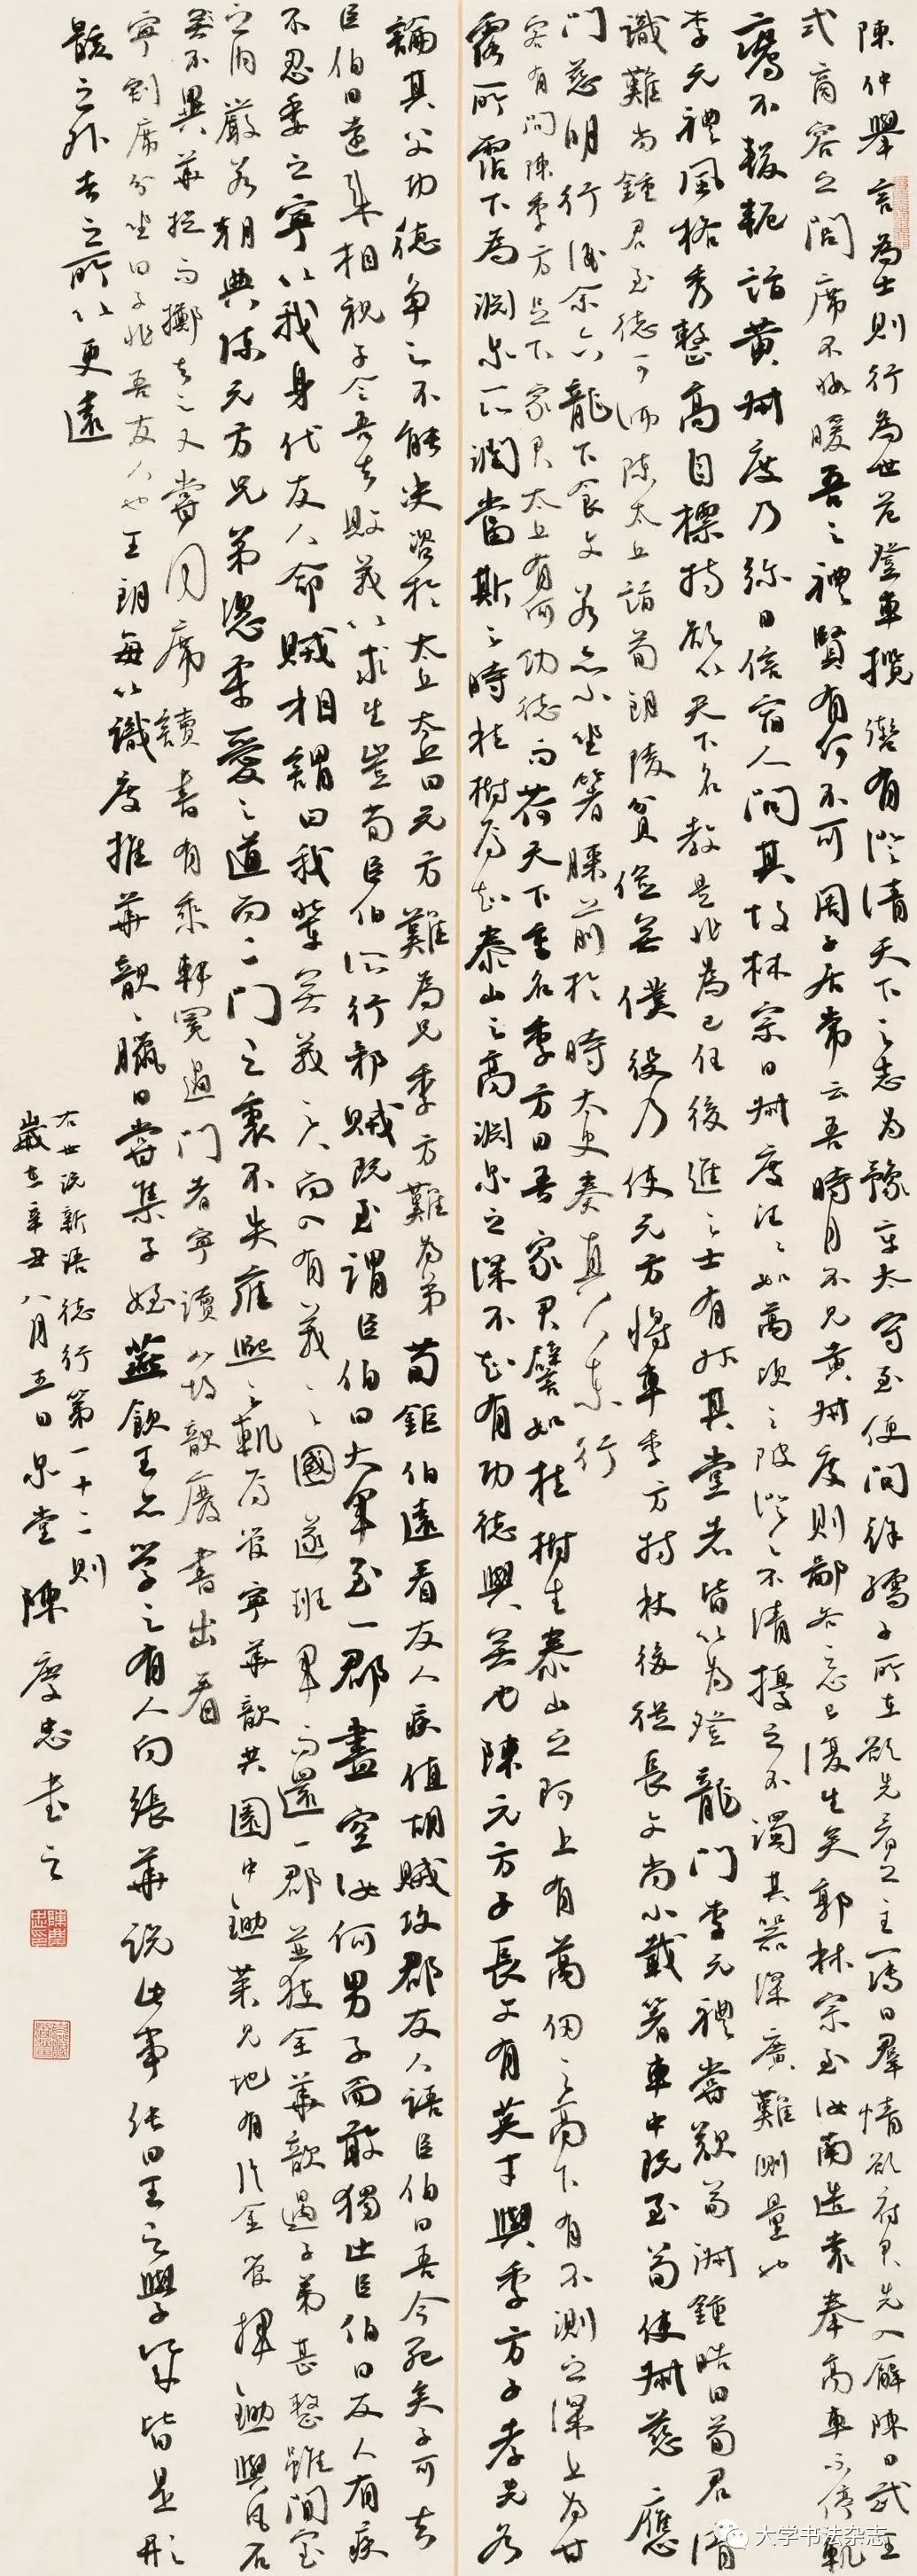 陳仲舉言為士則行為世范登車攬轡有澄清天下之志為豫章太守至便問徐孺子所在欲先看之主簿曰群情欲府君先入廨陳曰武王
式商容之閭席不暇暖吾之禮賢有何不可周子居常云吾時月不見黃叔度則鄙吝之心已復生矣郭林宗至汝南造袁奉高車不停軌
鸞不輟軛詣黃叔度乃彌日信宿人問其故林宗曰叔度汪汪如萬頃之陂澄之不清擾之不濁其器深廣難測量也
李元禮風格秀整高自標持欲以天下名教是非為己任後進之士有升其堂者皆以為登龍門李元禮嘗歎荀淑鍾皓曰荀君清
識難尚鍾君至德可師陳太丘詣荀朗陵貧儉無僕役乃使元方將車季方持杖後從長文尚小載著車中既至荀使叔慈應
門慈明行酒余六龍下食文若亦小坐著膝前於時太史奏真人東行
客有問陳季方足下家君太丘有何功德而荷天下重名季方曰吾家君譬如桂樹生泰山之阿上有萬仞之高下有不測之深上為甘
露所霑下為淵泉所潤當斯之時桂樹焉知泰山之高淵泉之深不知有功德與無也陳元方子長文有英才與季方子孝先各
論其父功德爭之不能決咨於太丘太丘曰元方難為兄季方難為弟荀巨伯遠看友人疾值胡賊攻郡友人語巨伯曰吾今死矣子可去
巨伯曰遠來相視子令吾去敗義以求生豈荀巨伯所行邪賊既至謂巨伯曰大軍至一郡盡空汝何男子而敢獨止巨伯曰友人有疾
不忍委之寧以我身代友人命賊相謂曰我輩無義之人而入有義之國遂班軍而還一郡並獲全華歆遇子弟甚整雖閒室
之內嚴若朝典陳元方兄弟恣柔愛之道而二門之裏不失雍熙之軌焉管寧華歆共園中鋤菜見地有片金管揮鋤與瓦石
無不異華捉而擲去之又嘗同席讀書有乘軒冕過門者寧讀如故歆廢書出看
寧割席分坐曰子非吾友人也王朗每以識度推華歆歆臘日嘗集子姪燕飲王亦學之有人向張華說此事張曰王之學華皆是形
骸之外去之所以更遠
右世說新語德行第一十二則
歲在辛丑八月五日泉堂陳慶忠書之
大学书法杂志